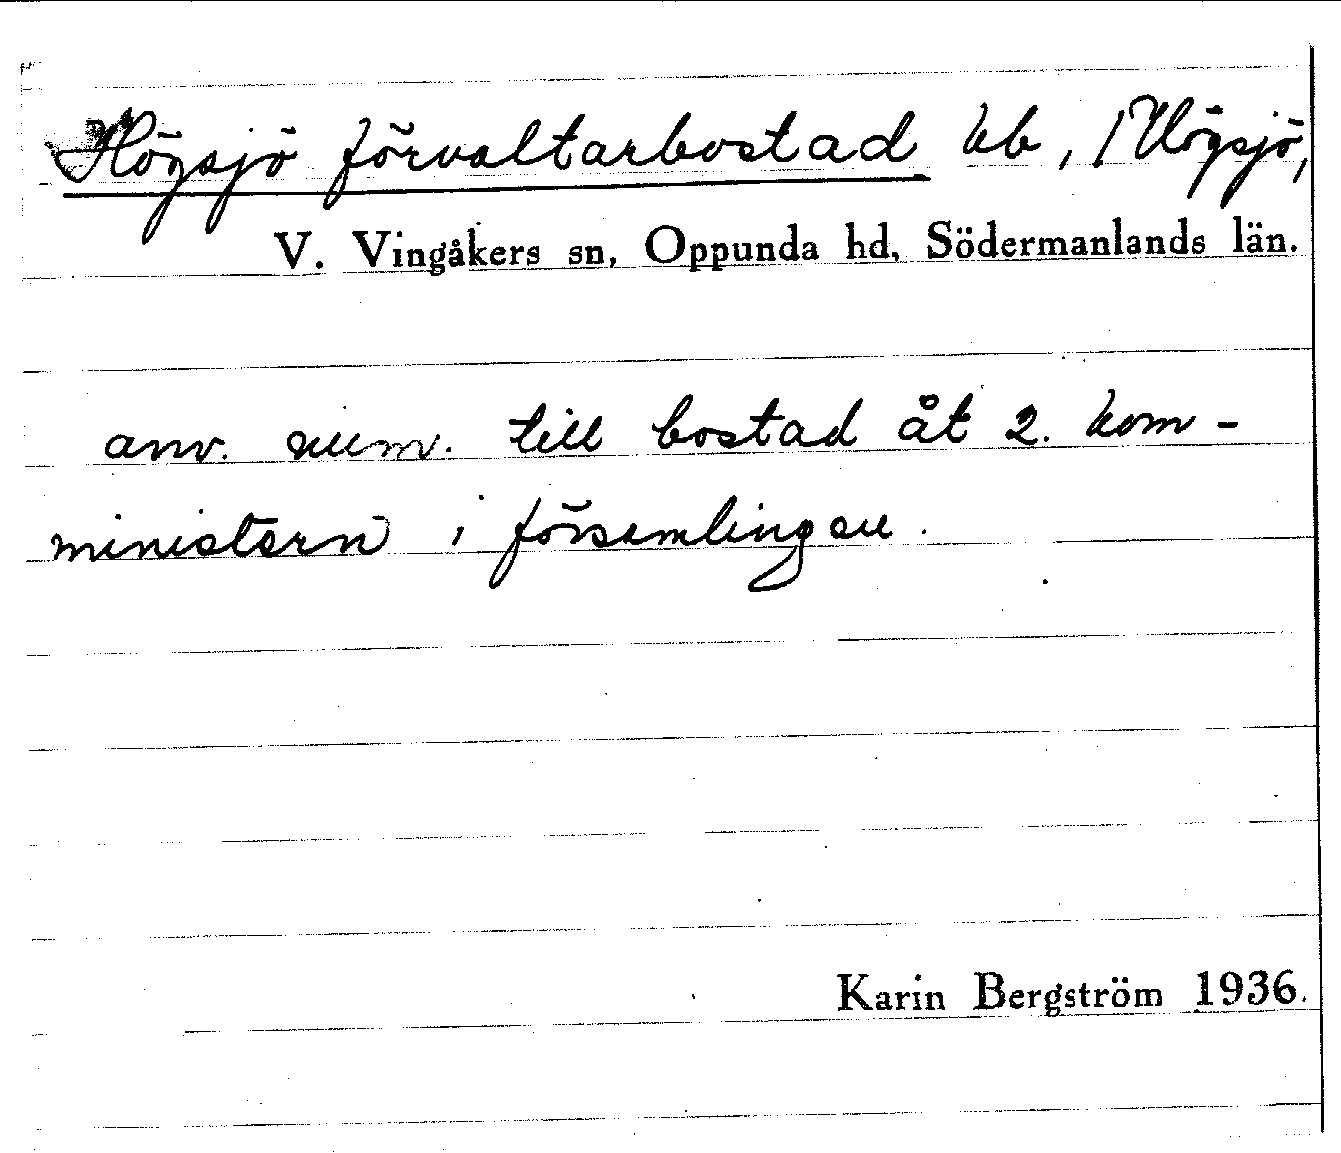 Högsjö förvaltarbostad hb, / Högsjö,
V. Vingåkers sn, Oppunda hd, Södermanlands län.
anv. num. till bostad åt 2. kom-
ministern i församlingen.
Karin Bergström 1936.